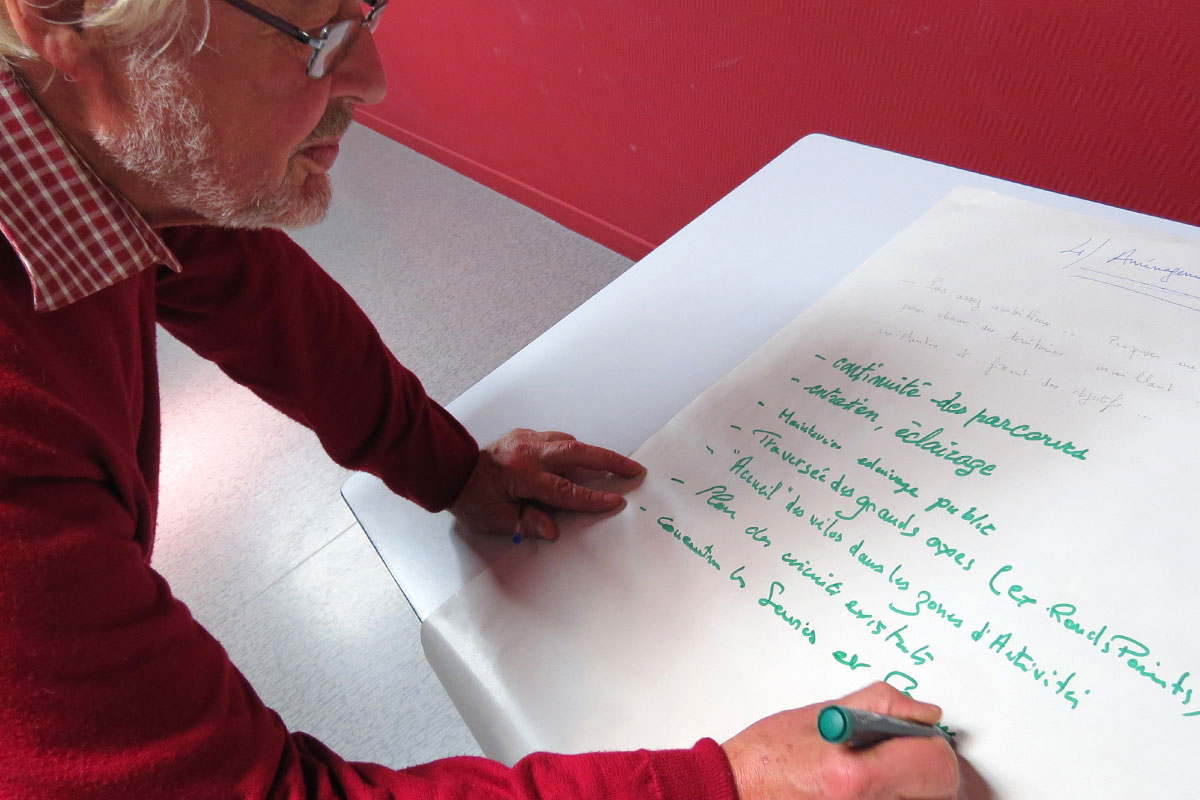 4/ Aménagem
- Pas assez ambitieux ... Proposer un
pour chacun des territoires maillant
existantes et fixant des objectifs ...
- continuité des parcours
- entretien, éclairage
- Maintenir eclairage public
- Traversée des grands axes (et Ronds Points,
- "Accueil" des vélos dans les zones d'Activités
- Plan des circuits existants
- les Services et